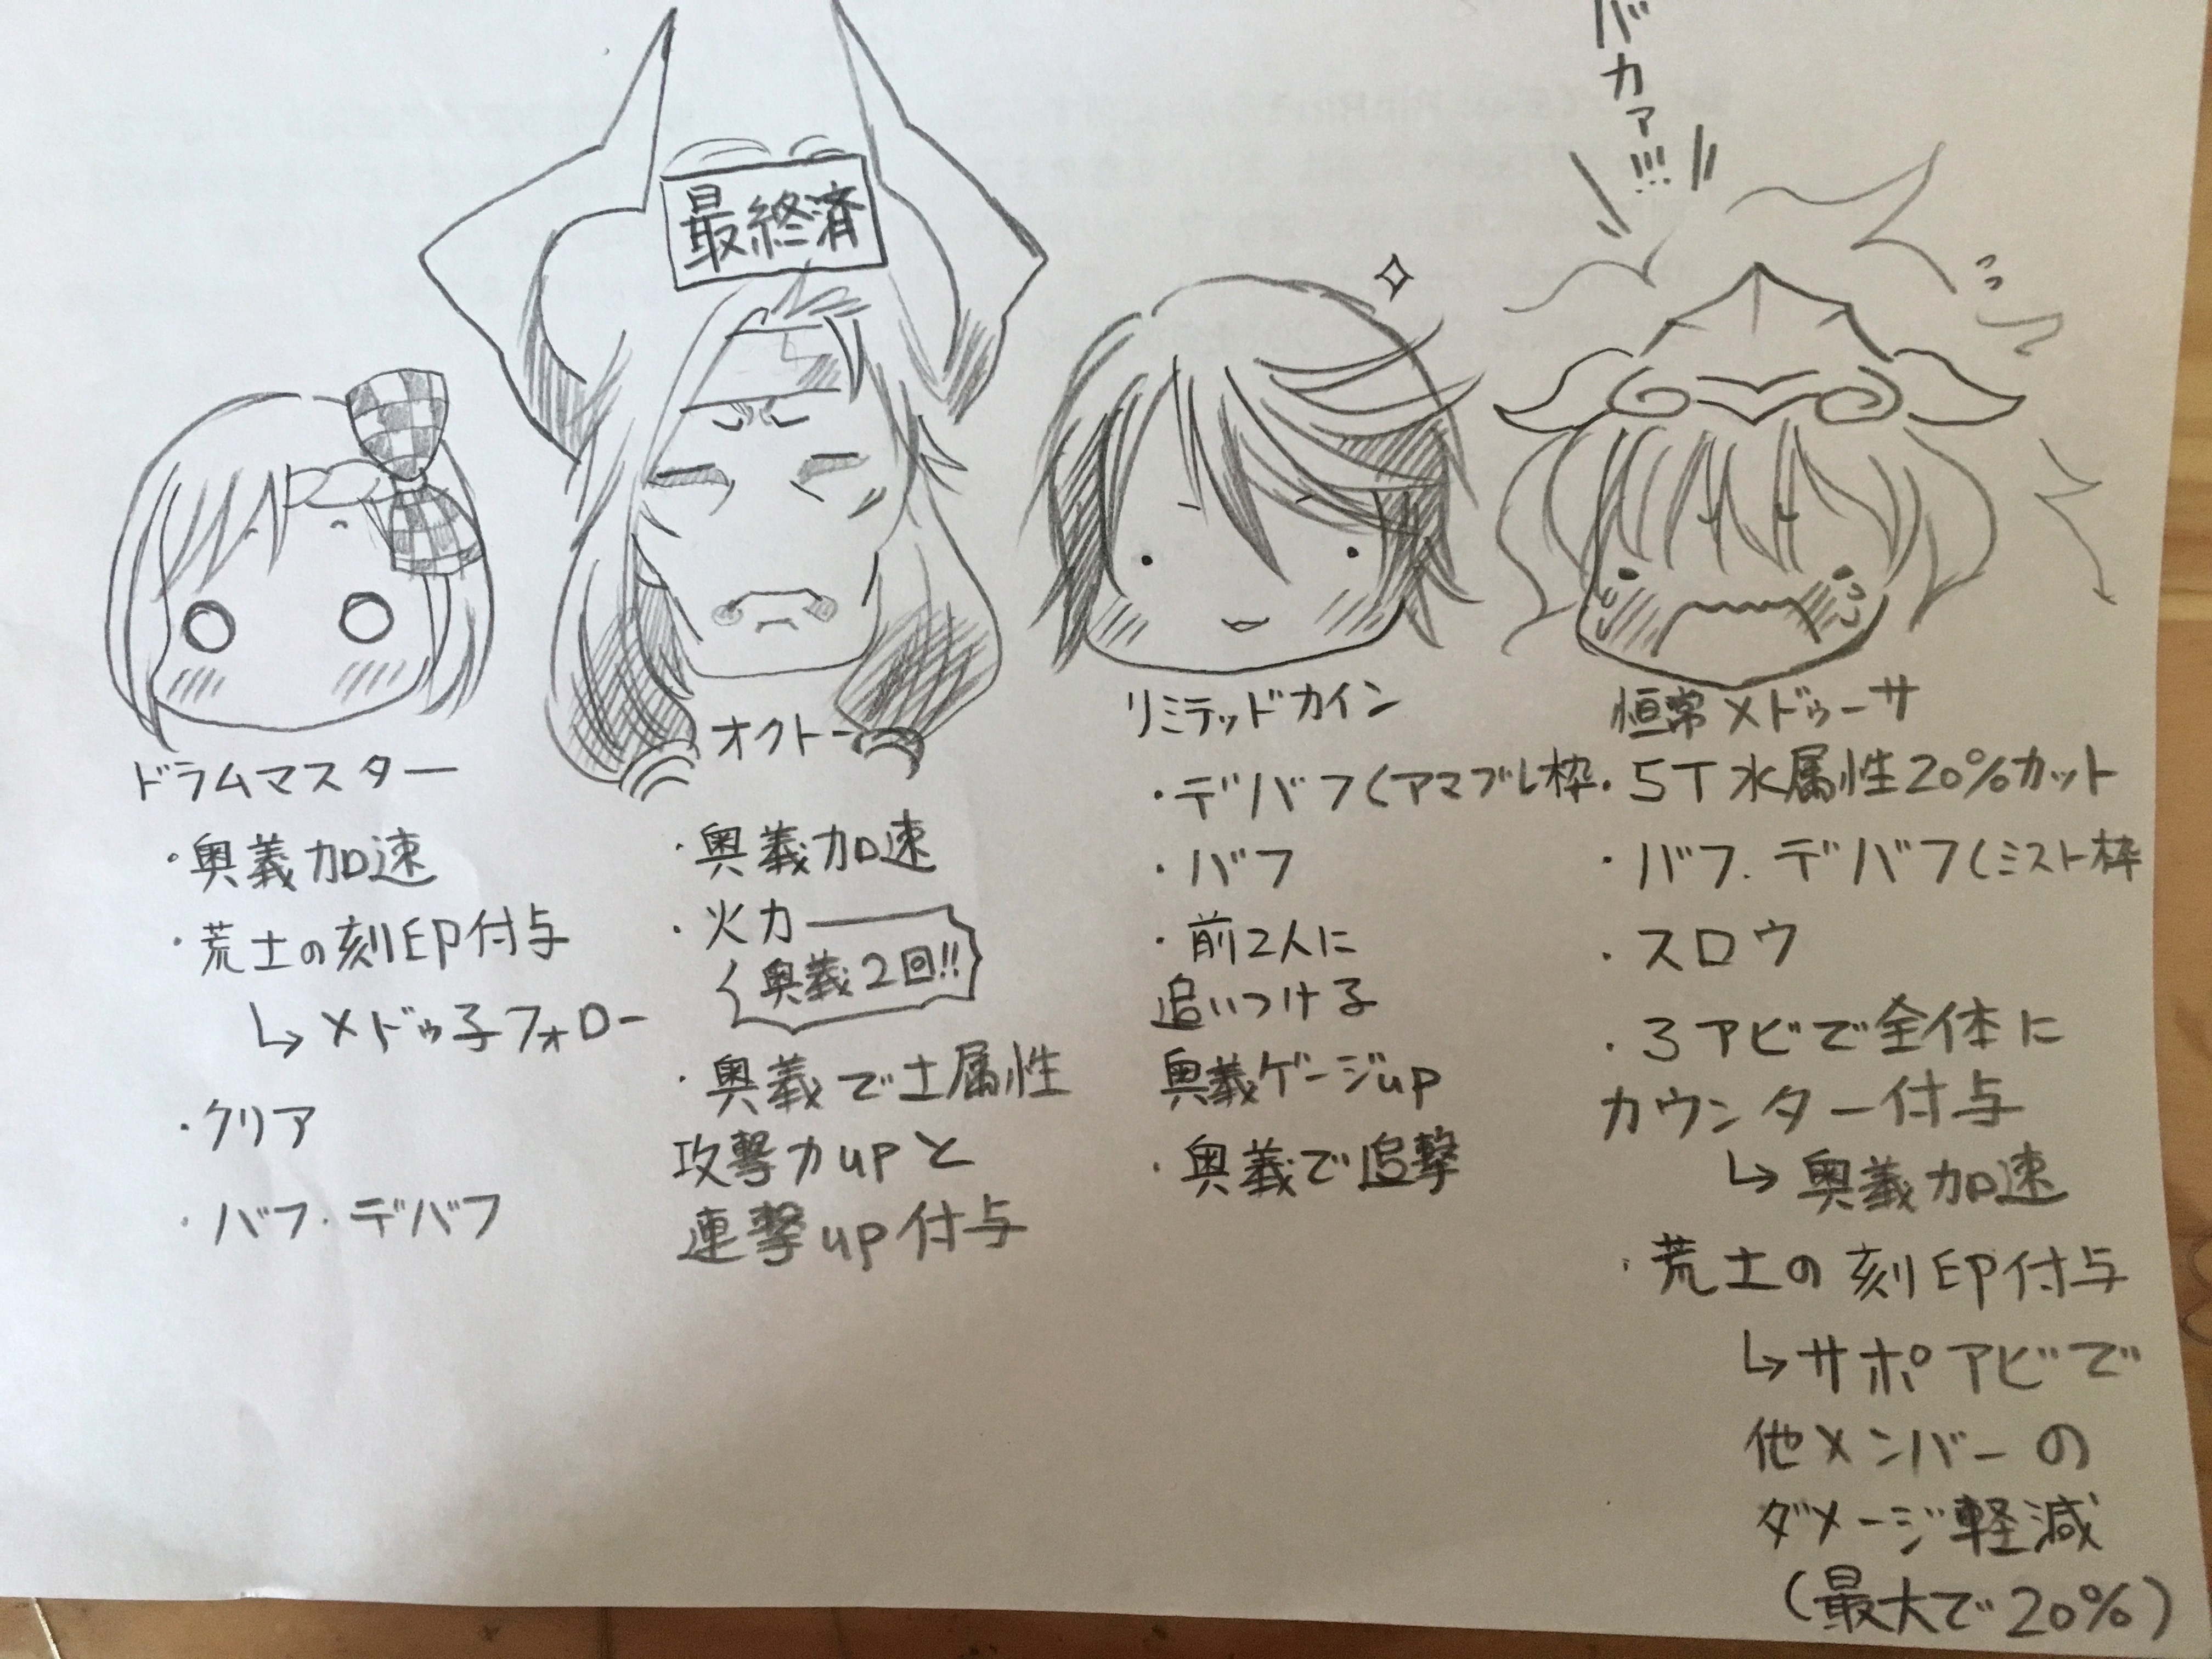 バカァ!!!
最終済
ドラムマスター
・奥義加速
・荒土の刻印付与
↳メドゥ子フォロー
・クリア
・バフ・デバフ
オクトー
・奥義加速
・火力
奥義2回!!
・奥義で土属性
攻撃力upと
連撃up付与
リミテッドカイン
・デバフ(アマブレ枠
・バフ
・前2人に
追いつける
奥義ゲージup
・奥義で追撃
恒常メドゥーサ
・5T水属性20%カット
・バフ.デバフ(ミスト枠
・スロウ
・3アビで全体に
カウンター付与
↳奥義加速
・荒土の刻印付与
↳サポアビで
他メンバーの
ダメージ軽減
(最大で20%)